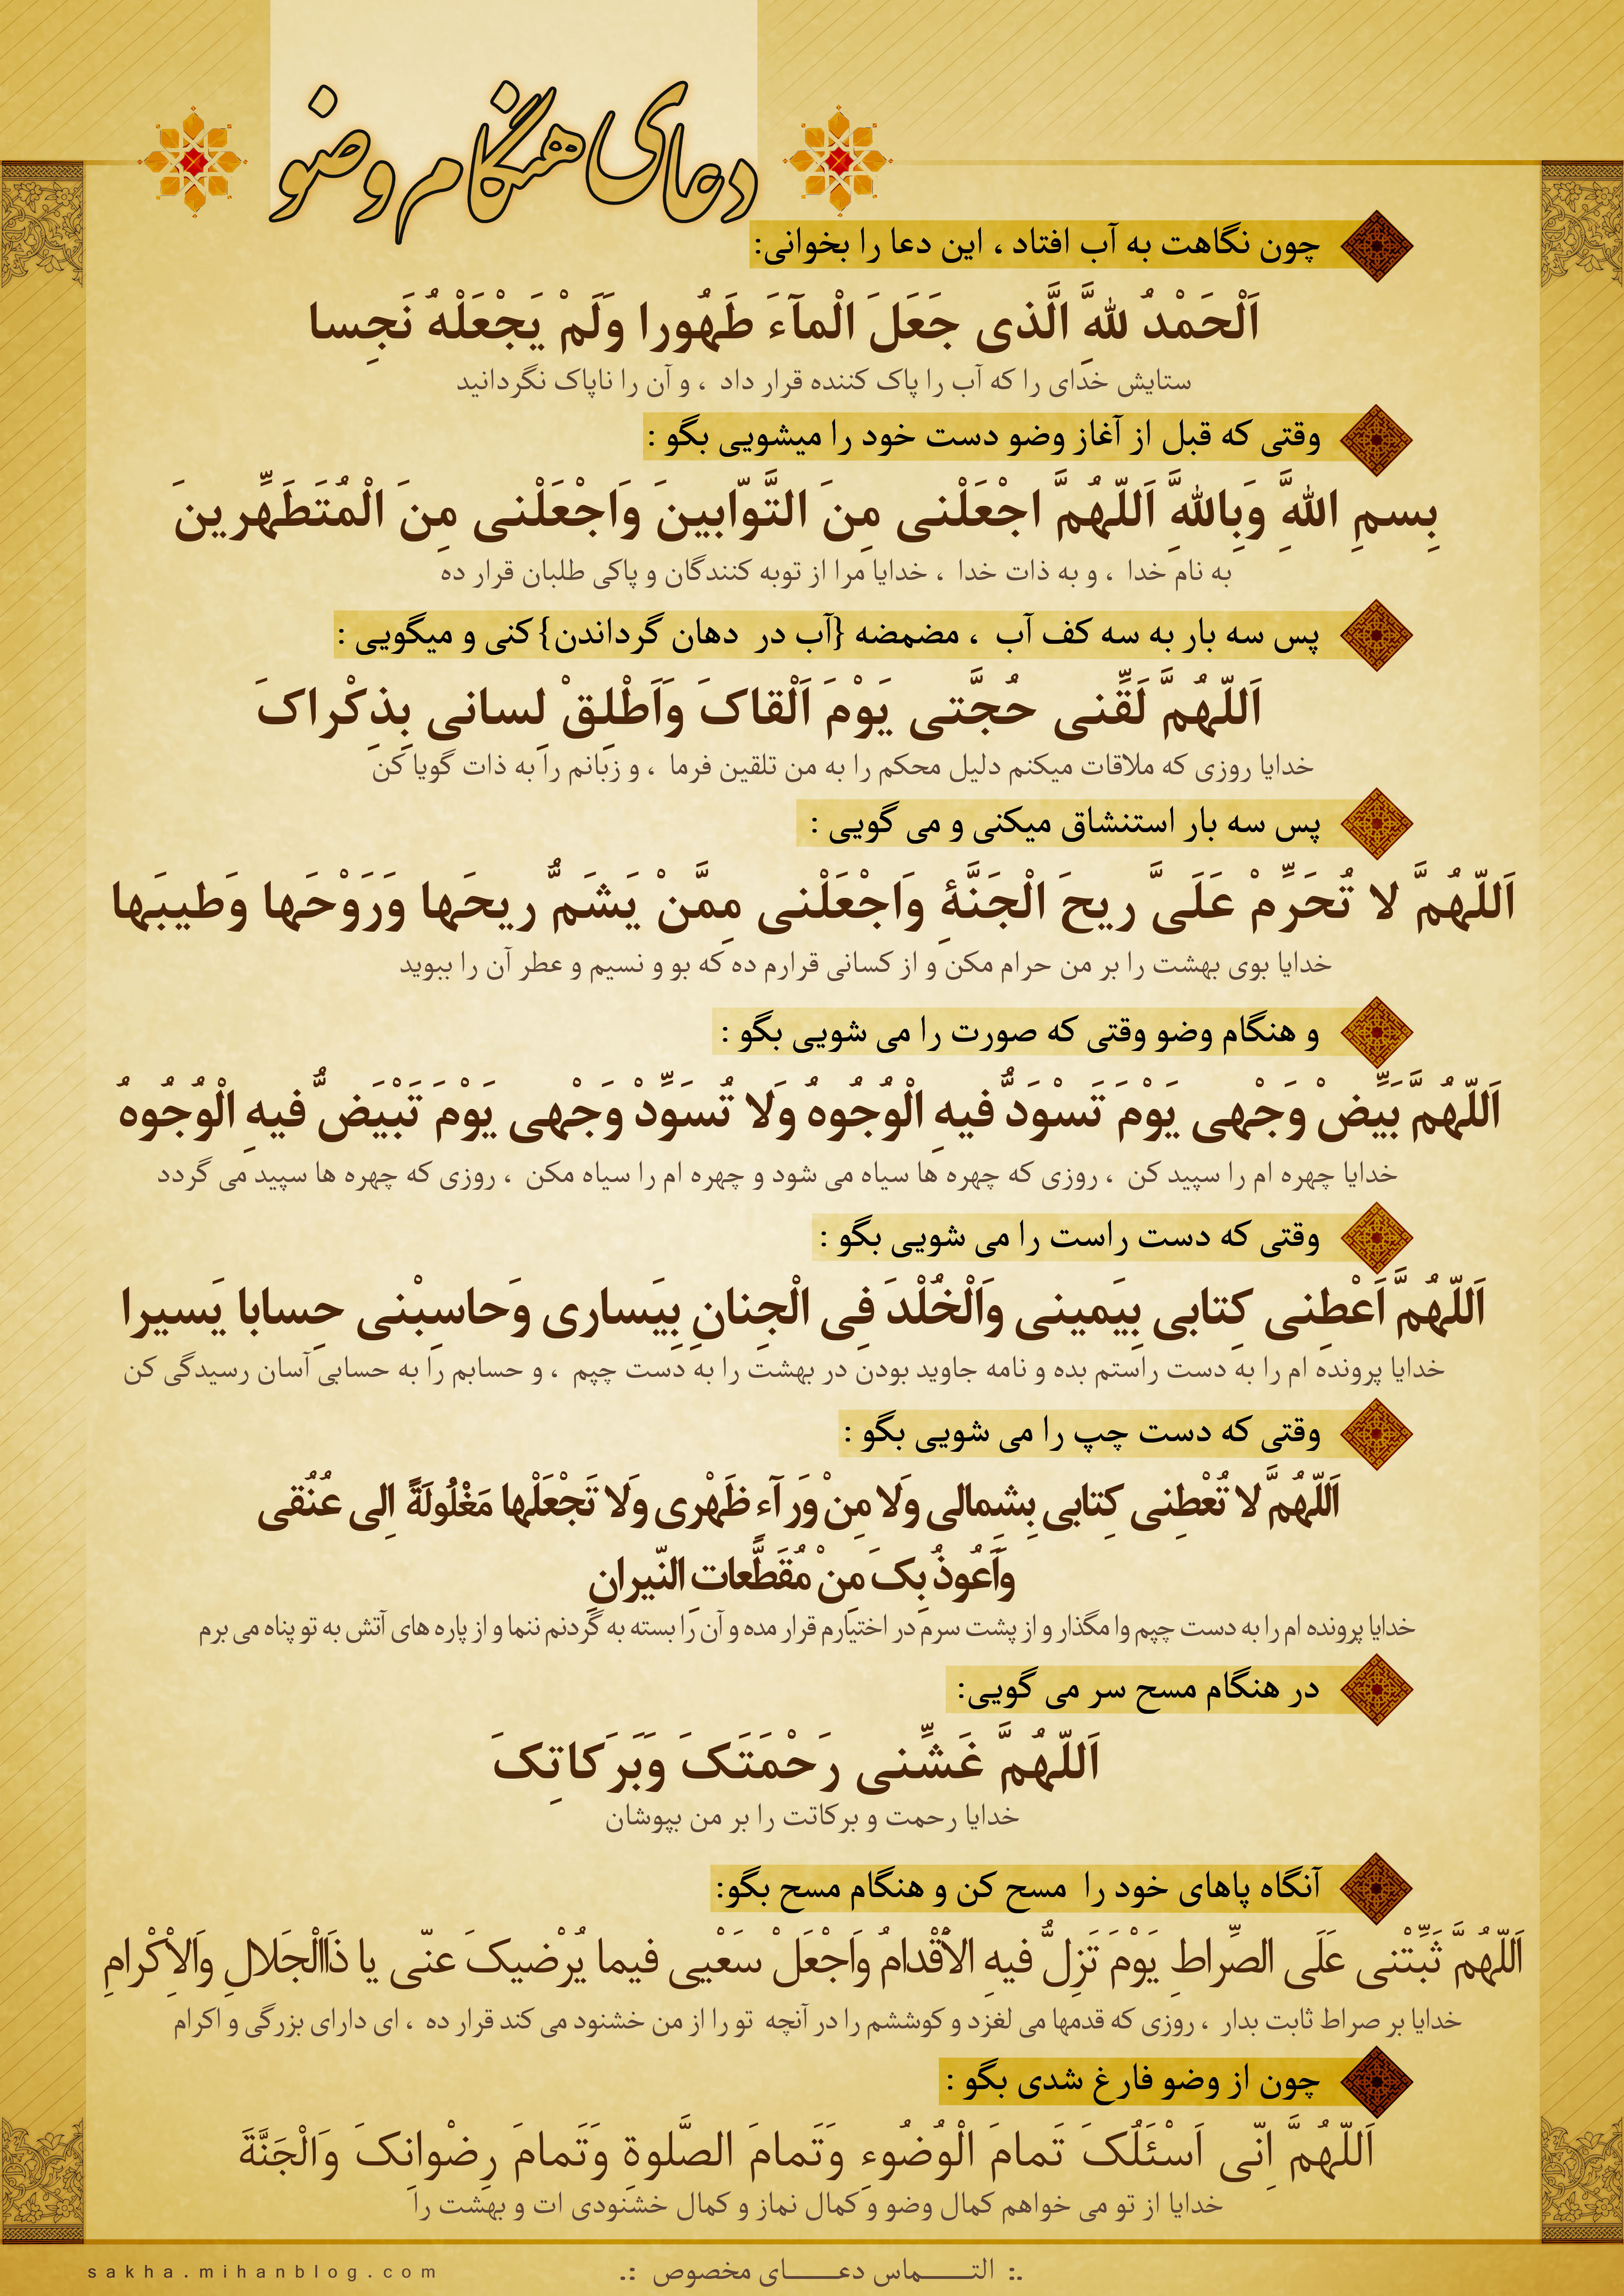 دعای هنگام وضو
چون نگاهت به آب افتاد ، این دعا را بخوانی:
اَلْحَمْدُ لِلّهِ الَّذی جَعَلَ الْمآءَ طَهُورا وَلَمْ یَجْعَلْهُ نَجِسا
ستایش خدای را که آب را پاک کننده قرار داد ، و آن را ناپاک نگردانید
وقتی که قبل از آغاز وضو دست خود را میشویی بگو :
بِسمِ اللهِ وَبِاللهِ اَللّهُمَّ اجْعَلْنی مِنَ التَّوّابینَ وَاجْعَلْنی مِنَ الْمُتَطَهِّرینَ
به نام خدا ، و به ذات خدا ، خدایا مرا از توبه کنندگان و پاکی طلبان قرار ده
پس سه بار به سه کف آب ، مضمضه {آب در دهان گرداندن} کنی و میگویی :
اَللّهُمَّ لَقِّنی حُجَّتی یَوْمَ اَلْقاکَ وَاَطْلِقْ لِسانی بِذِکْراکَ
خدایا روزی که ملاقات میکنم دلیل محکم را به من تلقین فرما ، و زبانم را به ذات گویا کن
پس سه بار استنشاق میکنی و می گویی :
اَللّهُمَّ لا تُحَرِّمْ عَلَیَّ ریحَ الْجَنَّهِٔ وَاجْعَلْنی مِمَّنْ یَشَمُّ ریحَها وَرَوْحَها وَطیبَها
خدایا بوی بهشت را بر من حرام مکن و از کسانی قرارم ده که بو و نسیم و عطر آن را ببوید
و هنگام وضو وقتی که صورت را می شویی بگو :
اَللّهُمَّ بَیِّضْ وَجْهی یَوْمَ تَسْوَدُّ فیهِ الْوُجُوهُ وَلا تُسَوِّدْ وَجْهی یَوْمَ تَبْیَضُّ فیهِ الْوُجُوهُ
خدایا چهره ام را سپید کن ، روزی که چهره ها سیاه می شود و چهره ام را سیاه مکن ، روزی که چهره ها سپید می گردد
وقتی که دست راست را می شویی بگو :
اَللّهُمَّ اَعْطِنی کِتابی بِیَمینی وَالْخُلْدَ فِی الْجِنانِ بِیَساری وَحاسِبْنی حِسابا یَسیرا
خدایا پرونده ام را به دست راستم بده و نامه جاوید بودن در بهشت را به دست چپم ، و حسابم را به حسابی آسان رسیدگی کن
وقتی که دست چپ را می شویی بگو :
اَللّهُمَّ لا تُعْطِنی کِتابی بِشِمالی وَلا مِنْ وَرآءِ ظَهْری وَلا تَجْعَلْها مَغْلُولَةً اِلی عُنُقی
وَاَعُوذُ بِکَ مِنْ مُقَطَّعاتِ النّیرانِ
خدایا پرونده ام را به دست چپم وا مگذار و از پشت سرم در اختیارم قرار مده و آن را بسته به گردنم ننما و از پاره های آتش به تو پناه می برم
در هنگام مسح سر می گویی:
اَللّهُمَّ غَشِّنی رَحْمَتَکَ وَبَرَکاتِکَ
خدایا رحمت و برکاتت را بر من بپوشان
آنگاه پاهای خود را مسح کن و هنگام مسح بگو:
اَللّهُمَّ ثَبِّتْنی عَلَی الصِّراطِ یَوْمَ تَزِلُّ فیهِ الاَْقْدامُ وَاجْعَلْ سَعْیی فیما یُرْضیکَ عَنّی یا ذَاالْجَلالِ وَالاِْکْرامِ
خدایا بر صراط ثابت بدار ، روزی که قدمها می لغزد و کوششم را در آنچه تو را از من خشنود می کند قرار ده ، ای دارای بزرگی و اکرام
چون از وضو فارغ شدی بگو :
اَللّهُمَّ اِنّی اَسْئَلُکَ تَمامَ الْوُضُوءِ وَتَمامَ الصَّلوةِ وَتَمامَ رِضْوانِکَ وَالْجَنَّةَ
خدایا از تو می خواهم کمال وضو و کمال نماز و کمال خشنودی ات و بهشت را
.: التـــماس دعــــای مخصوص :.
sakha.mihanblog.com